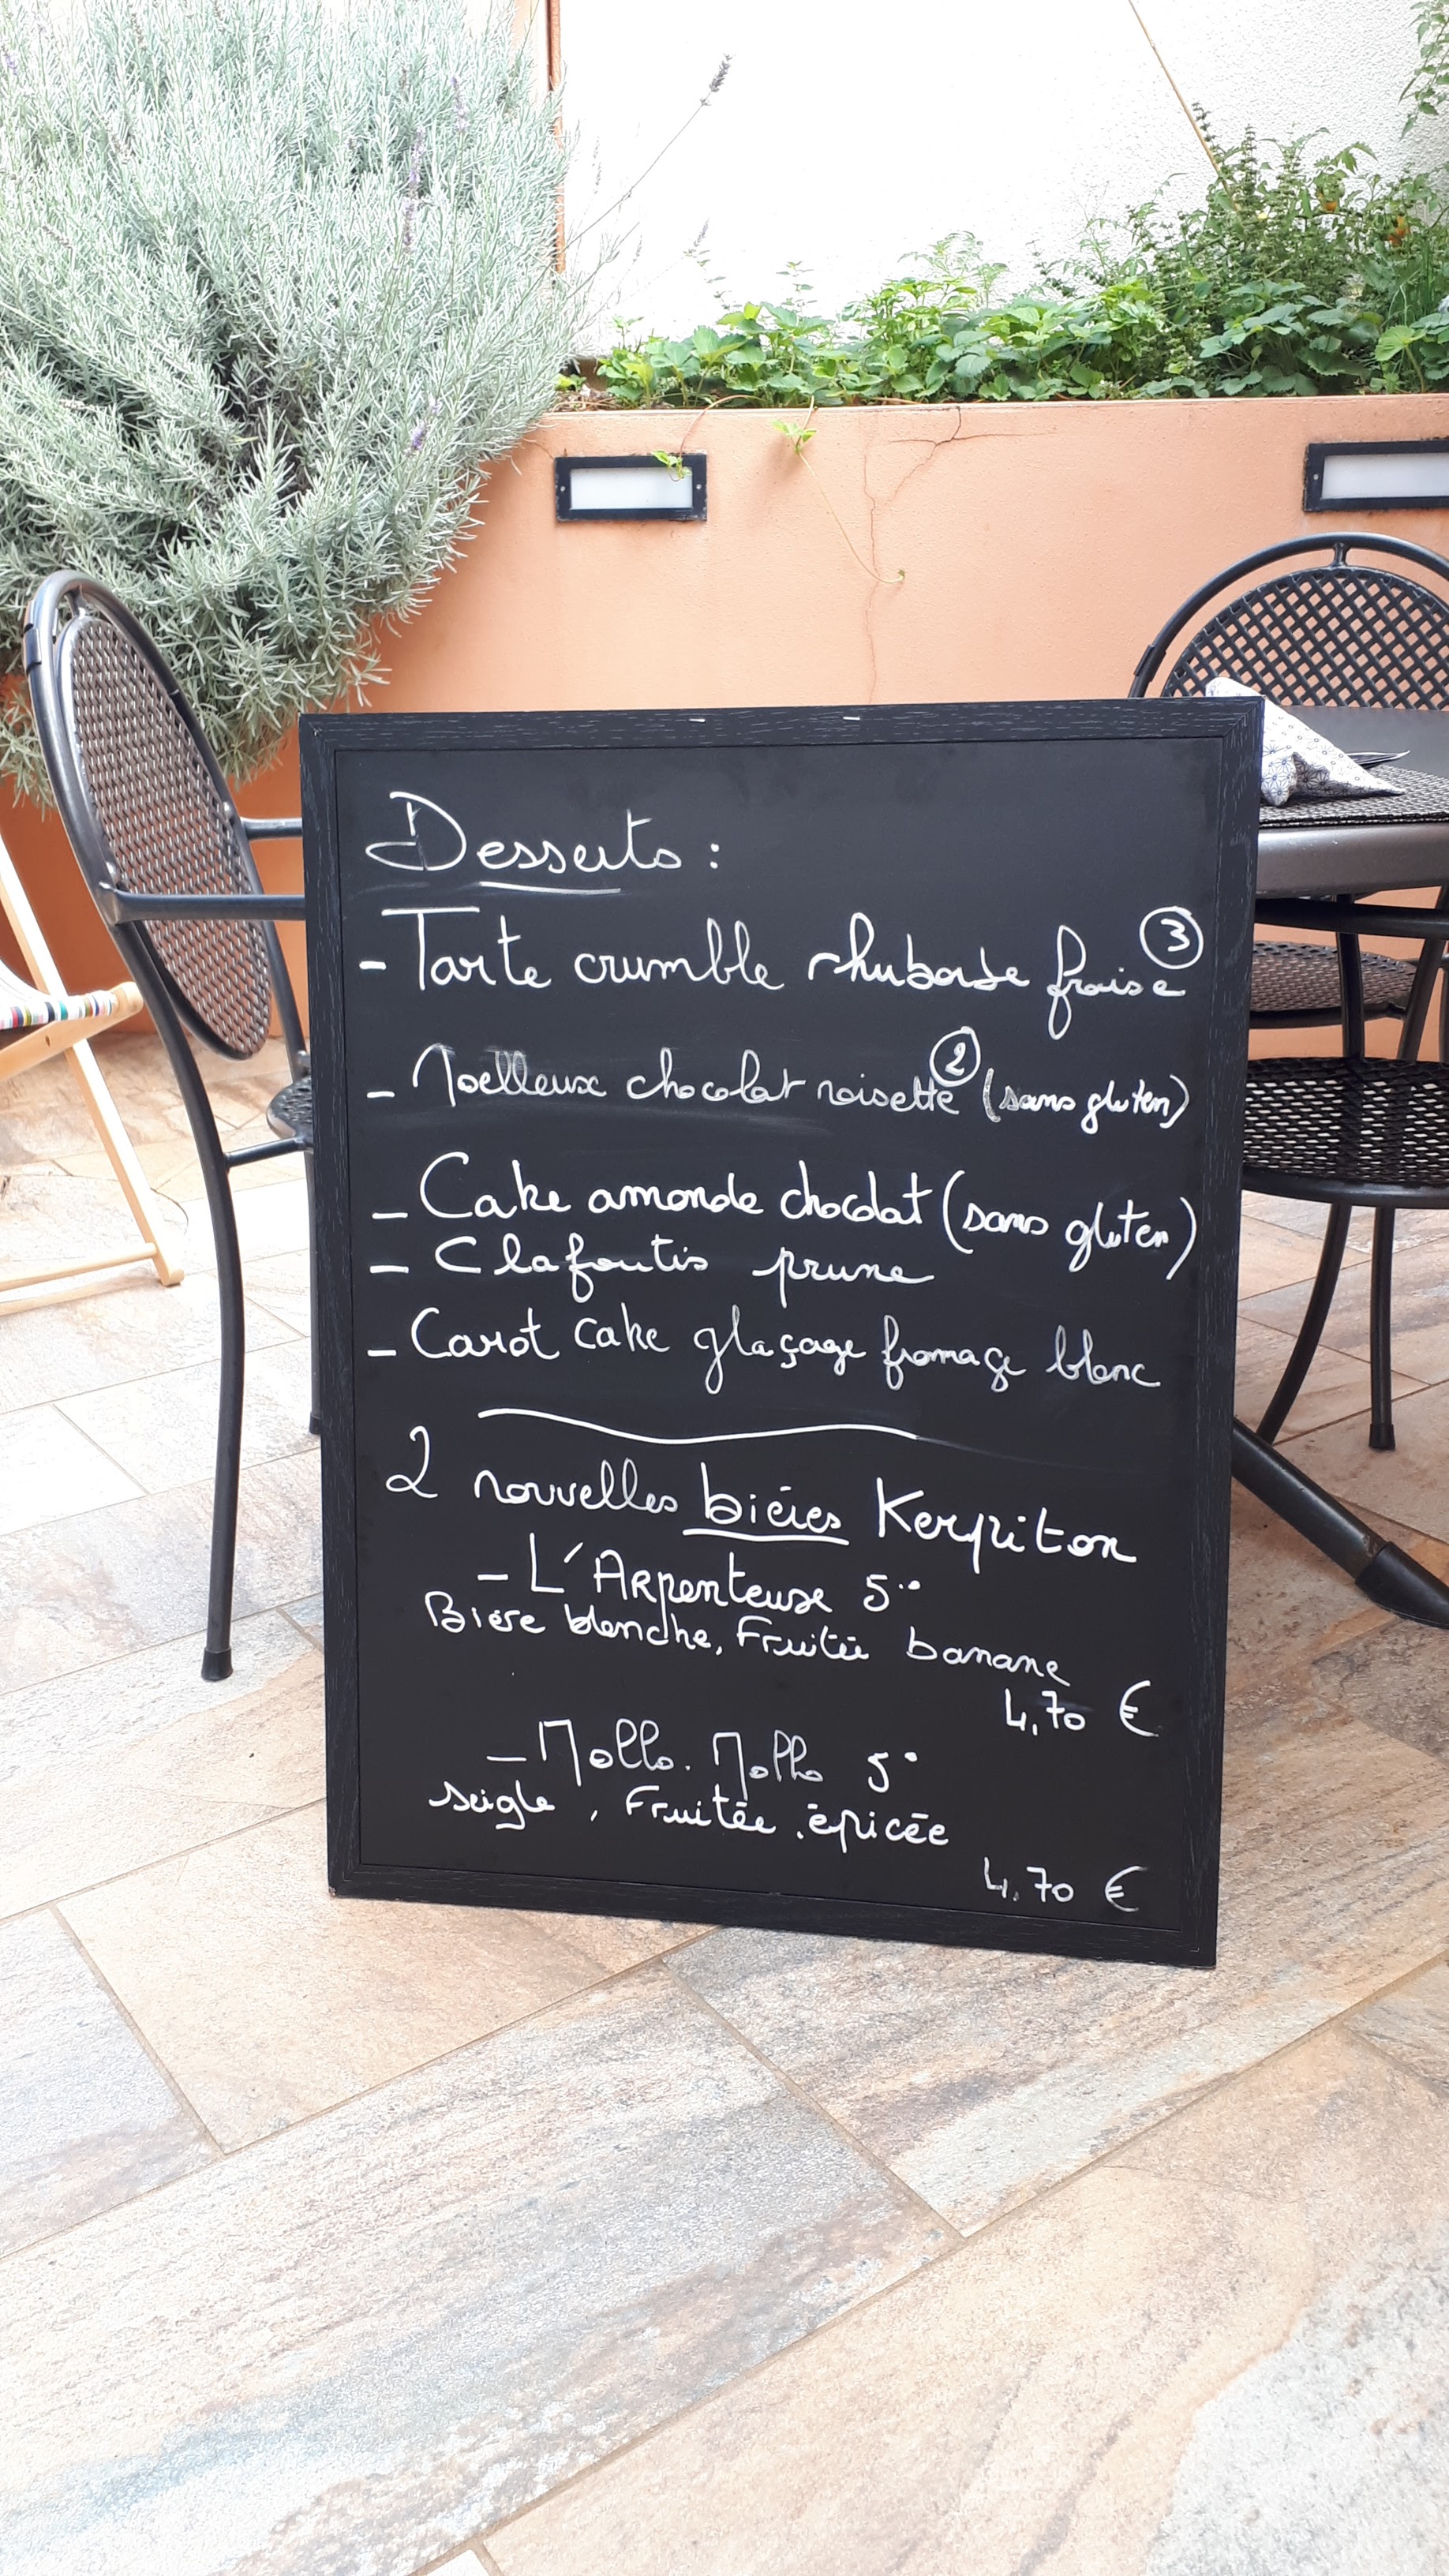 Desserts :
- Tarte crumble rhubarbe fraise ③
- Moelleux chocolat noisette ② (sans gluten)
- Cake amande chocolat (sans gluten)
- Clafoutis prune
- Carot cake glaçage fromage blanc
2 nouvelles bières Kerpiton
- L'Arpenteuse 5°
Bière blanche, Fruitée banane
4,70 €
- Mollo. Mollo 5°
seigle, Fruitée, épicée
4,70 €